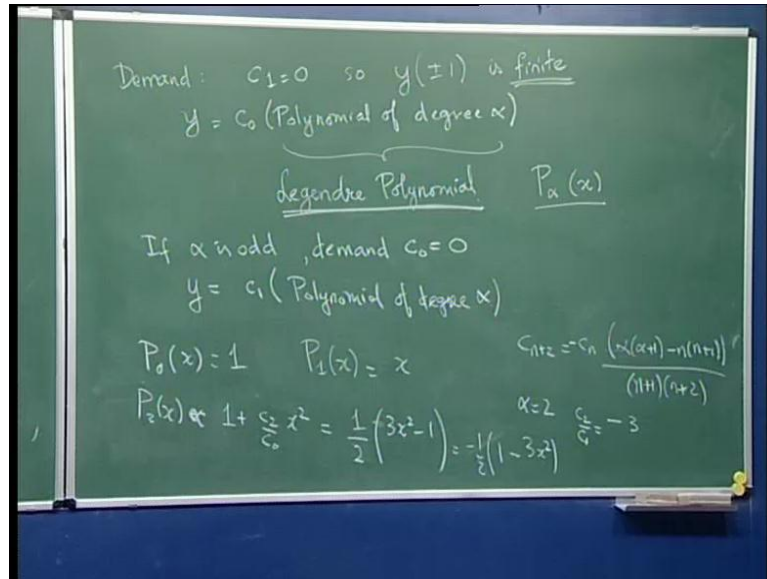 Demand : C₁=0 so y(±1) is finite
y = C₀ (Polynomial of degree α)
Legendre Polynomial Pα(x)
If α is odd, demand C₀=0
y = C₁ (Polynomial of degree α)
P₀(x) = 1 P₁(x) = x
Cₙ₊₂ = -Cₙ (α(α+1)-n(n+1))/((n+1)(n+2))
P₂(x) ∝ 1 + C₂/C₀ x² = 1/2 (3x²-1) = -1/2 (1-3x²)
α=2 C₂/C₀ = -3